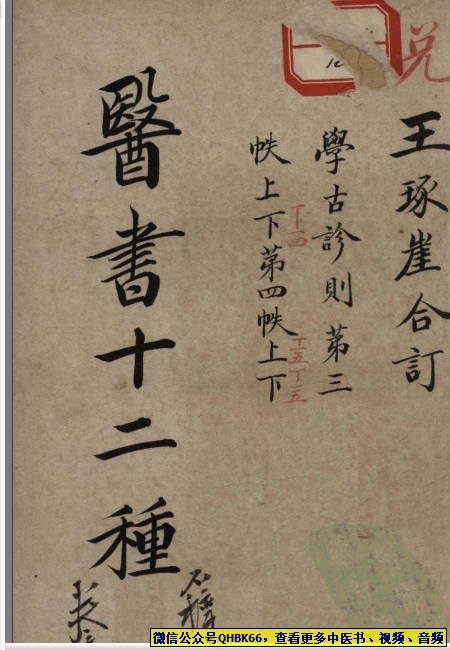 兑
王琢崖合訂
學古診則第三
帙上下第四帙上下
丁四
十五丁五
醫書十二種
微信公众号QHBK66，查看更多中医书、视频、音频